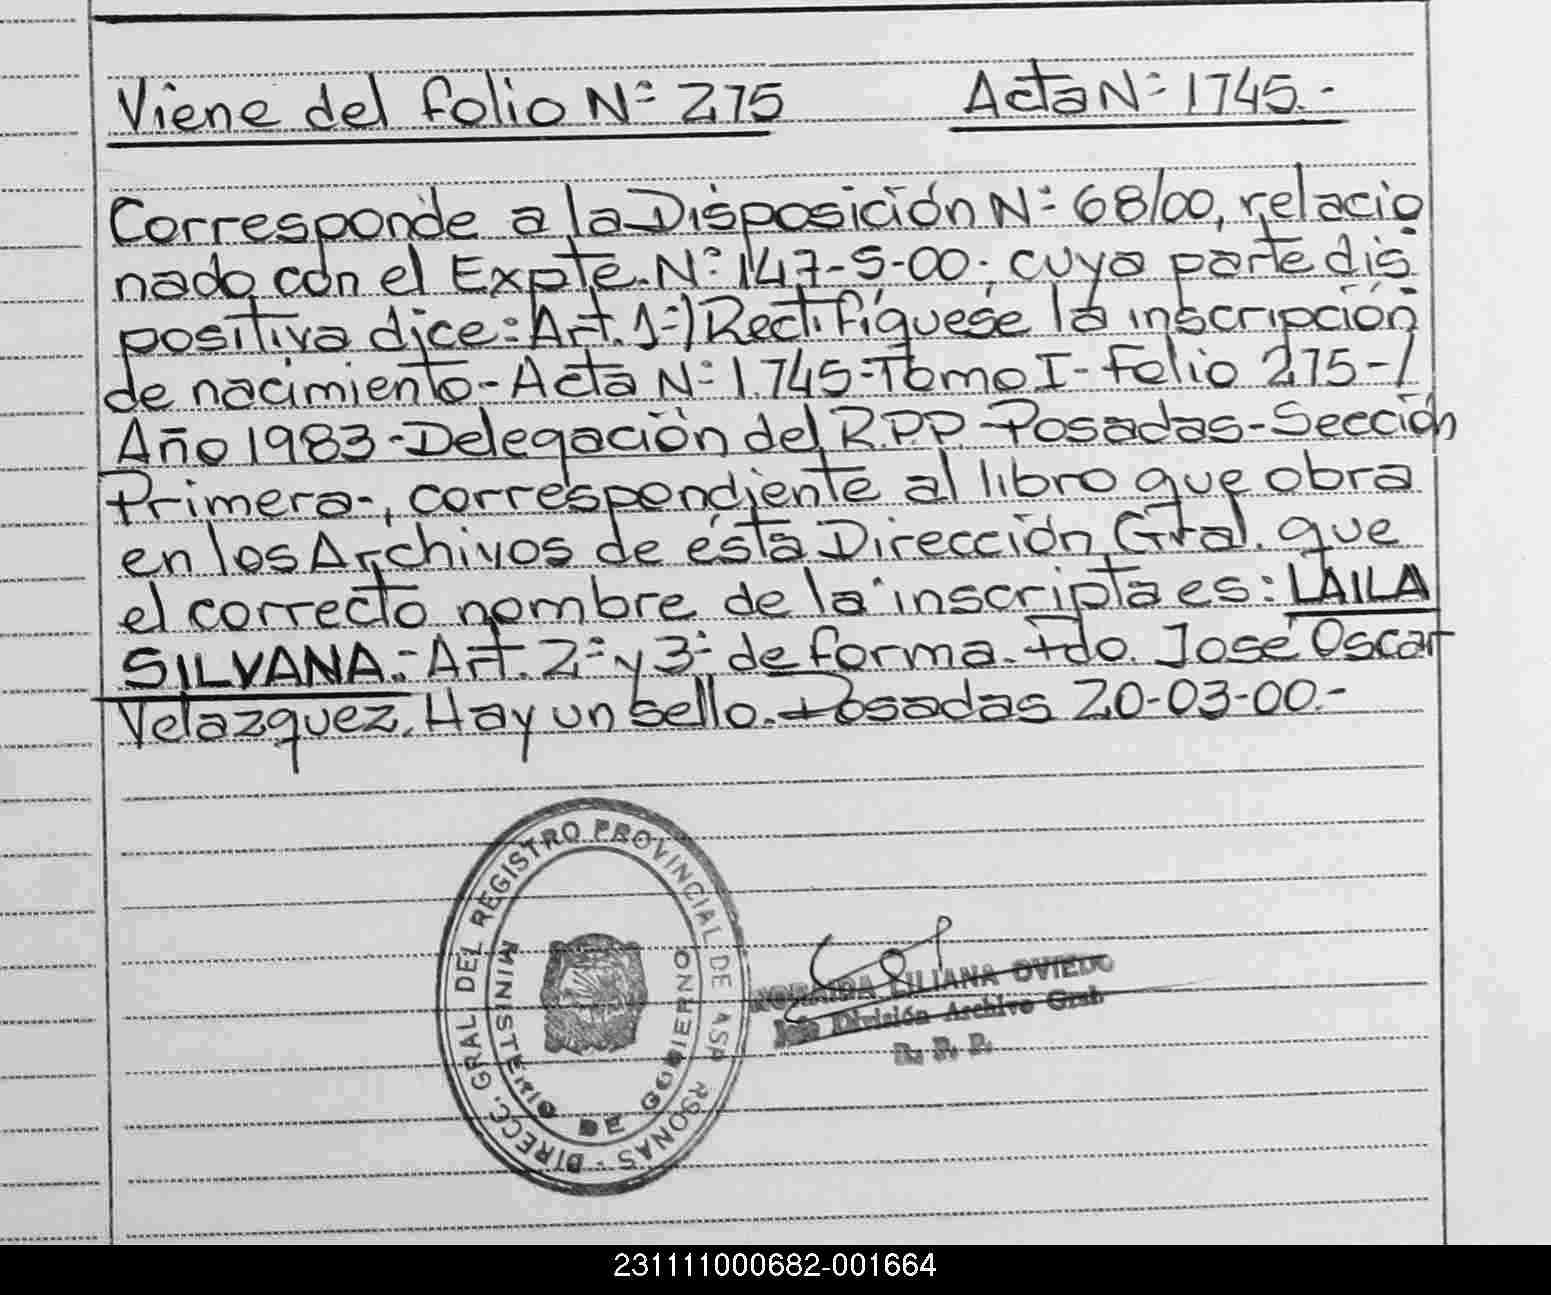 Viene del folio Nº 275 Acta Nº 1745.-
Corresponde a la Disposición Nº 68/00, relacio
nado con el Expte. Nº 147-S-00; cuya parte dis
positiva dice: Art. 1º) Rectifíquese la inscripción
de nacimiento- Acta Nº 1.745-Tomo I- Folio 275-/
Año 1983-Delegación del R.P.P.-Posadas-Sección
Primera-, correspondiente al libro que obra
en los Archivos de ésta Dirección Gral. que
el correcto nombre de la inscripta es: LAILA
SILVANA.- Art. 2º y 3º de forma. Fdo. José Oscar
Velazquez. Hay un sello. Posadas 20-03-00.-
DIRECC. GRAL DEL REGISTRO PROVINCIAL DE AS P RSONAS -
MINISTERIO DE GOBIERNO
LILIANA OVIEDO
División Archivo Gral.
R. P. P.
231111000682-001664